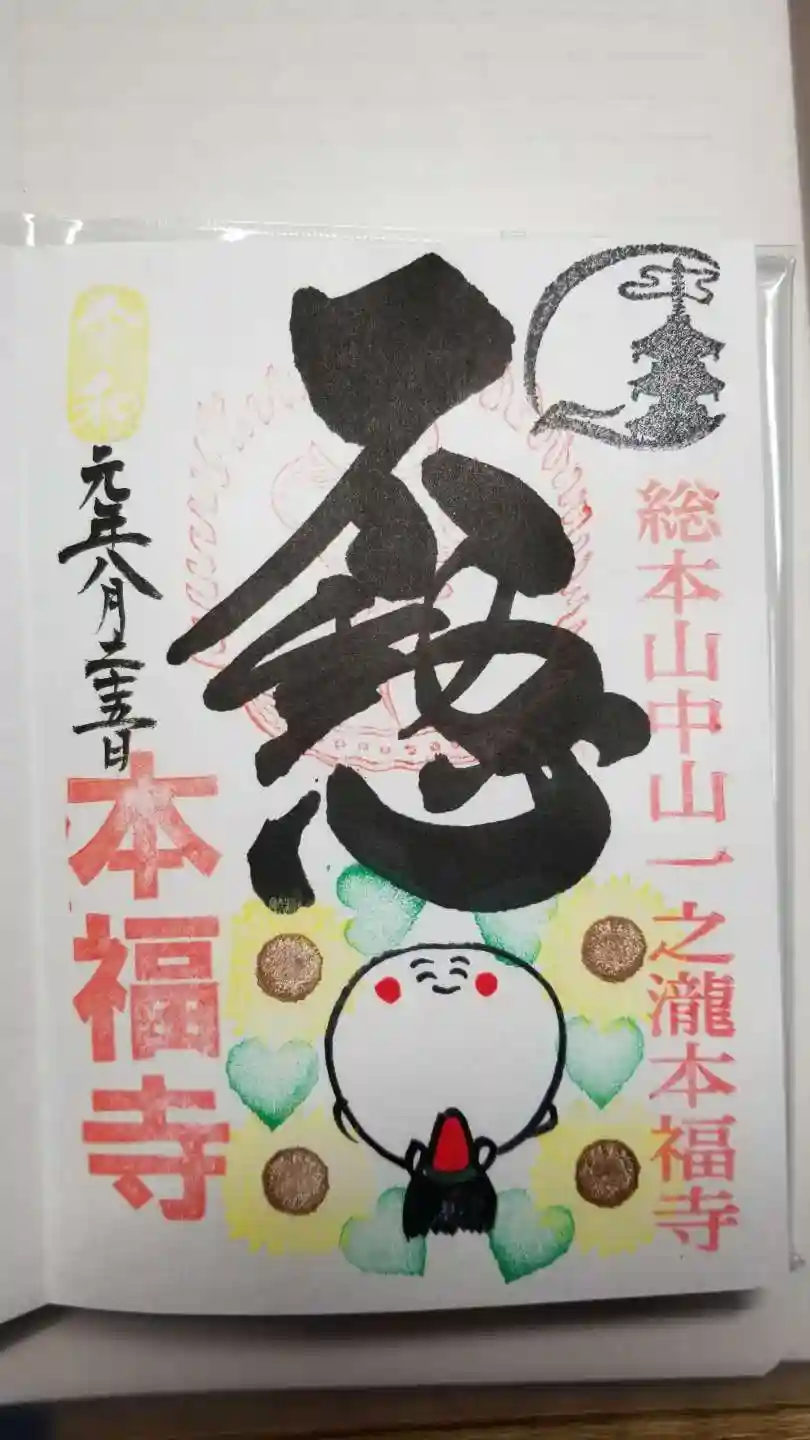 総本山中山一之瀧本福寺
令和
元年八月二十五日
本福寺